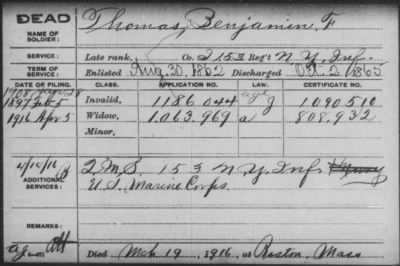 DEAD
NAME OF SOLDIER: Thomas, Benjamin. F
SERVICE: Late rank, Co. I 153 Reg't N.Y. Inf.
TERM OF SERVICE: Enlisted Aug. 30, 1862 Discharged Oct. 2, 1865
DATE OF FILING. CLASS. APPLICATION NO. LAW. CERTIFICATE NO.
1908
1897 Feb 5 Invalid, 1186044 age J 1090510
1916 Apr 5 Widow, 1.063.969 a 808,932
Minor,
4/14/16 153 N Y Inf.
ADDITIONAL SERVICES: U.S. Marine Corps.
REMARKS:
Died Mch 19, 1916, at Boston, Mass